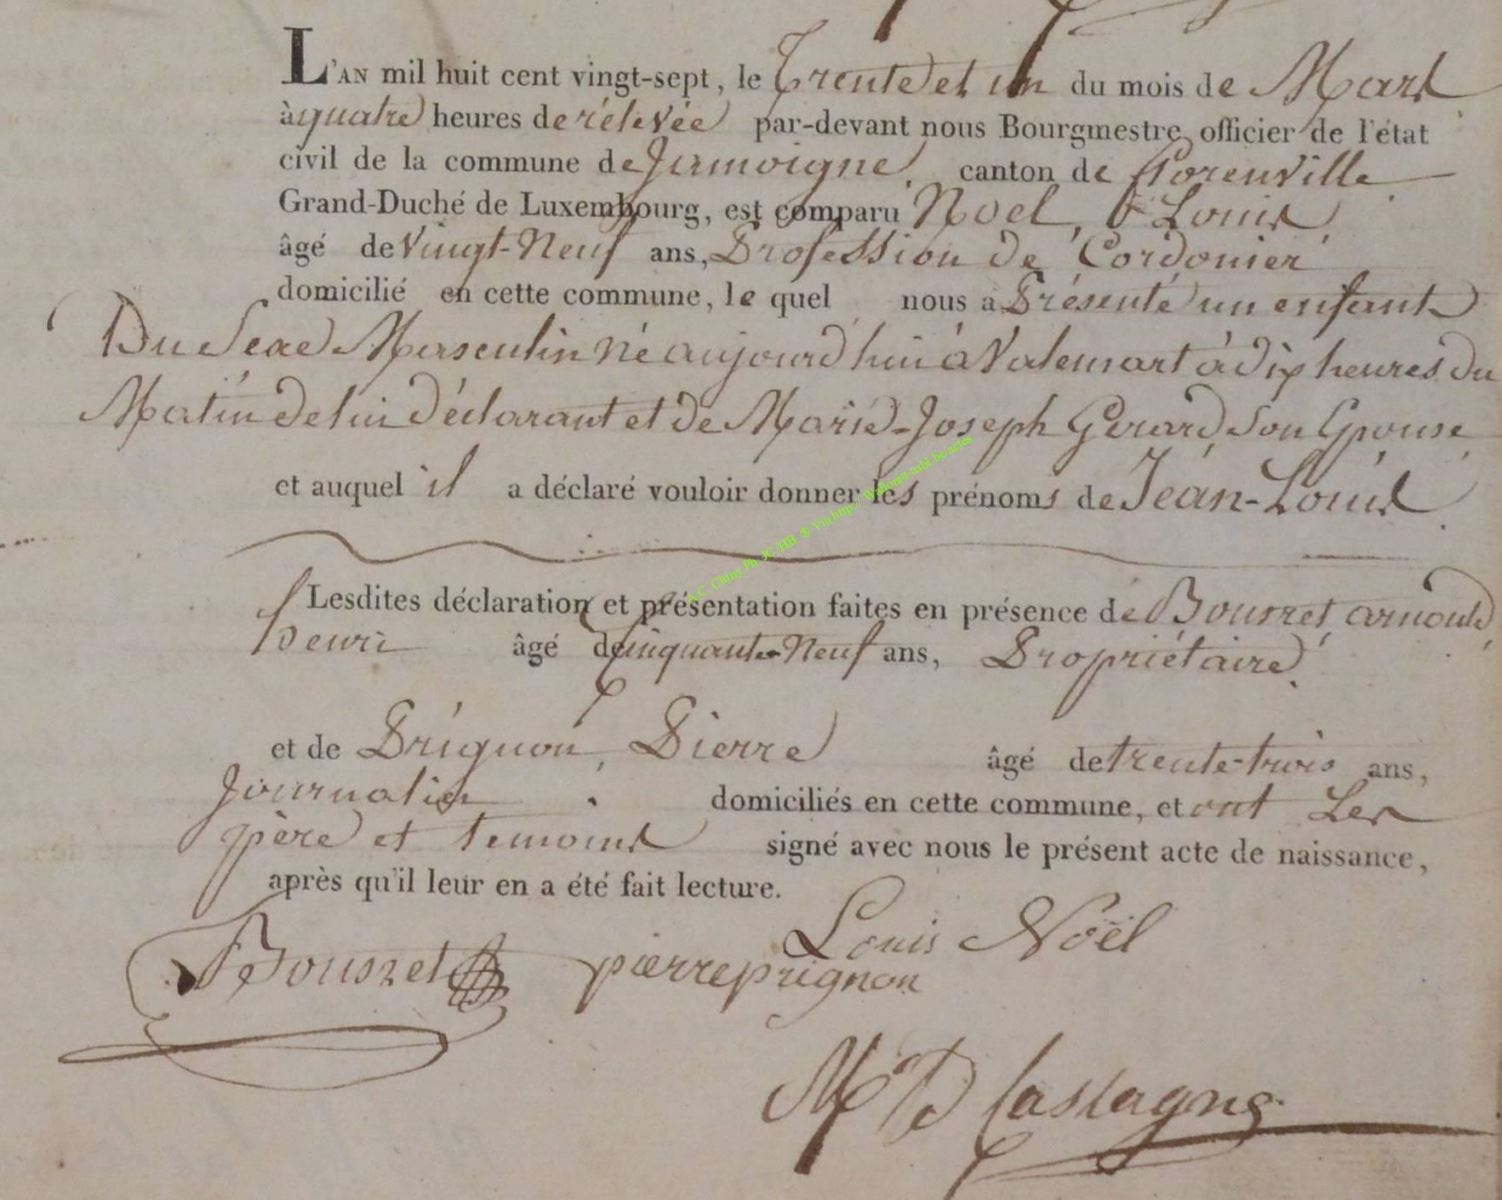 L'AN mil huit cent vingt-sept, le Trente et un du mois de Mars
à quatre heures de rélevée par-devant nous Bourgmestre, officier de l'état
civil de la commune de Jamoigne, canton de florenville
Grand-Duché de Luxembourg, est comparu Noel, Louis,
âgé de Vingt-Neuf ans, Profession de Cordonier
domicilié en cette commune, le quel nous a Présenté un enfant
Du Sexe Masculin né aujourd'hui à Valensart à dix heures du
Matin de lui déclarant et de Marie-Joseph Gérard Son Epouse
et auquel il a déclaré vouloir donner les prénoms de Jéan-Louis
Lesdites déclaration et présentation faites en présence de Bousret, arnould,
henri âgé de cinquante-Neuf ans, Propriétaire,
et de Prignon, Pierre âgé de trente-trois ans,
Journalier, domiciliés en cette commune, et ont Les
père et temoins signé avec nous le présent acte de naissance,
après qu'il leur en a été fait lecture.
Louis Noël
Bousret pierre prignon